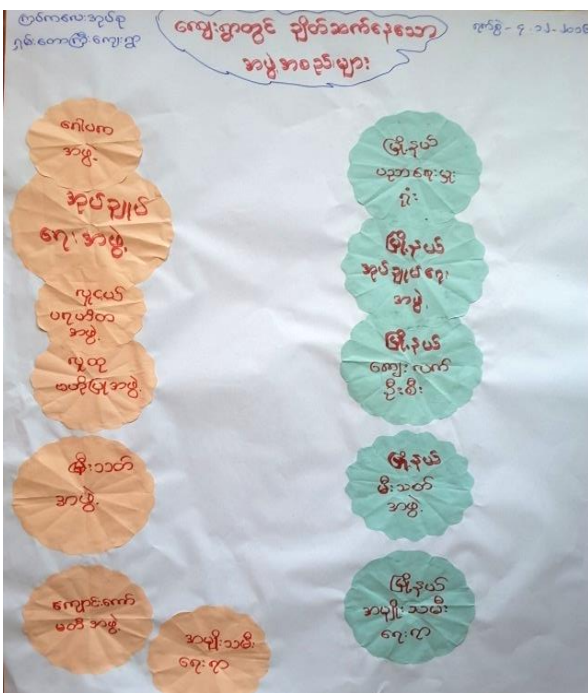 ကျေးရွာတွင် ချိတ်ဆက်နေသော
အဖွဲ့အစည်းများ
ရက်စွဲ - ၄.၁၂-၂၀၁၆
ဂေါပက
အဖွဲ့
အုပ်ချုပ်
ရေးအဖွဲ့
လူငယ်
ပရဟိတ
အဖွဲ့
လူထု
ဗဟိုပြုအဖွဲ့
မီးသတ်
အဖွဲ့
ကျောင်းကော်
မတီအဖွဲ့
အမျိုးသမီး
ရေးရာ
မြို့နယ်
ပညာရေးမှူး
ရုံး
မြို့နယ်
အုပ်ချုပ်ရေး
အဖွဲ့
မြို့နယ်
ကျေးလက်
ဦးစီး
မြို့နယ်
မီးသတ်
အဖွဲ့
မြို့နယ်
အမျိုးသမီး
ရေးရာ